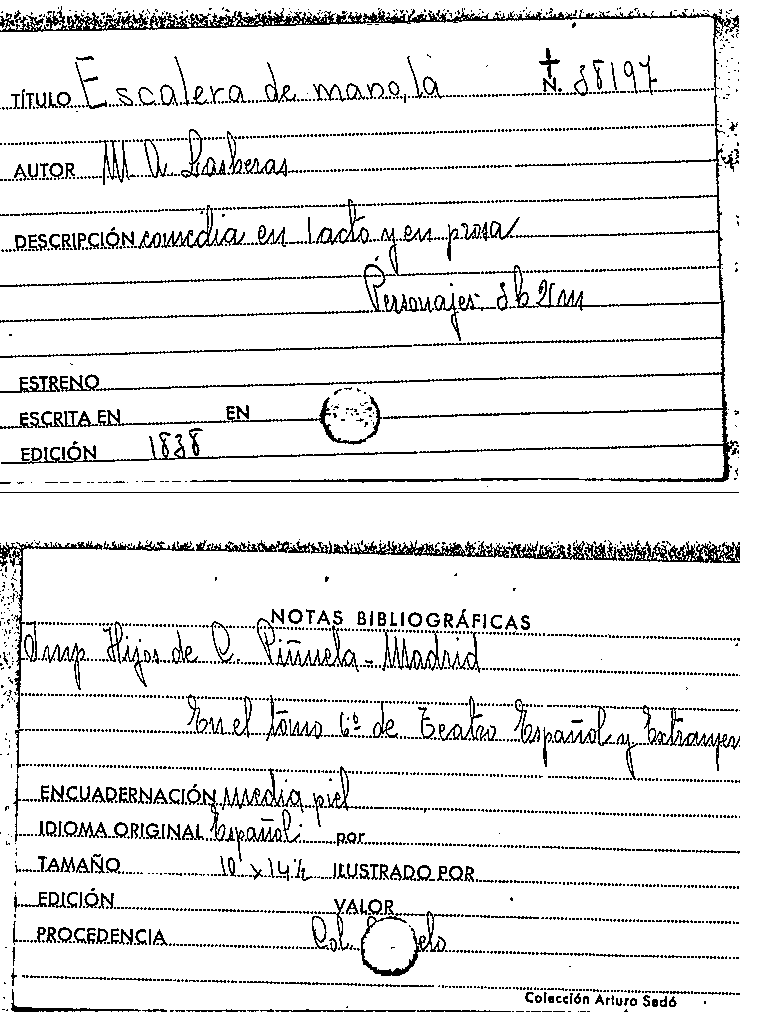 TÍTULO Escalera de mano, la N. 38197
AUTOR M A Lasheras
DESCRIPCIÓN comedia en 1 acto y en prosa
Personajes. 8h 2m
ESTRENO
ESCRITA EN EN
EDICIÓN 1838
NOTAS BIBLIOGRÁFICAS
Imp Hijos de C. Piñuela - Madrid
En el tomo 6º de Teatro Español y Extranjer
ENCUADERNACIÓN media piel
IDIOMA ORIGINAL Español por
TAMAÑO 10 x 14½ ILUSTRADO POR
EDICIÓN VALOR
PROCEDENCIA Col.
Colección Arturo Sedó